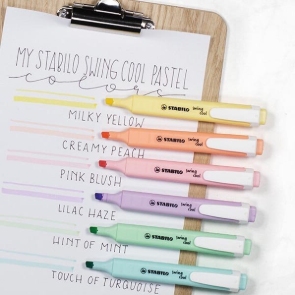 MY STABILO SWING COOL PASTEL
colors
MILKY YELLOW
STABILO swing cool
CREAMY PEACH
STABILO swing cool
PINK BLUSH
STABILO swing cool
LILAC HAZE
STABILO swing cool
HINT OF MINT
STABILO swing cool
TOUCH OF TURQUOISE
STABILO swing cool